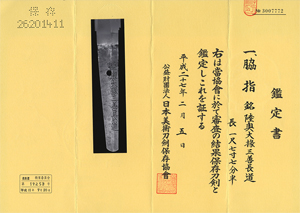 鑑定書
一、脇指 銘 陸奥大掾三善長道
長 一尺七寸七分半
右は当協会に於て審査の結果保存刀剣と
鑑定しこれを証する
平成二十七年二月五日
公益財団法人 日本美術刀剣保存協会
保存
26201411